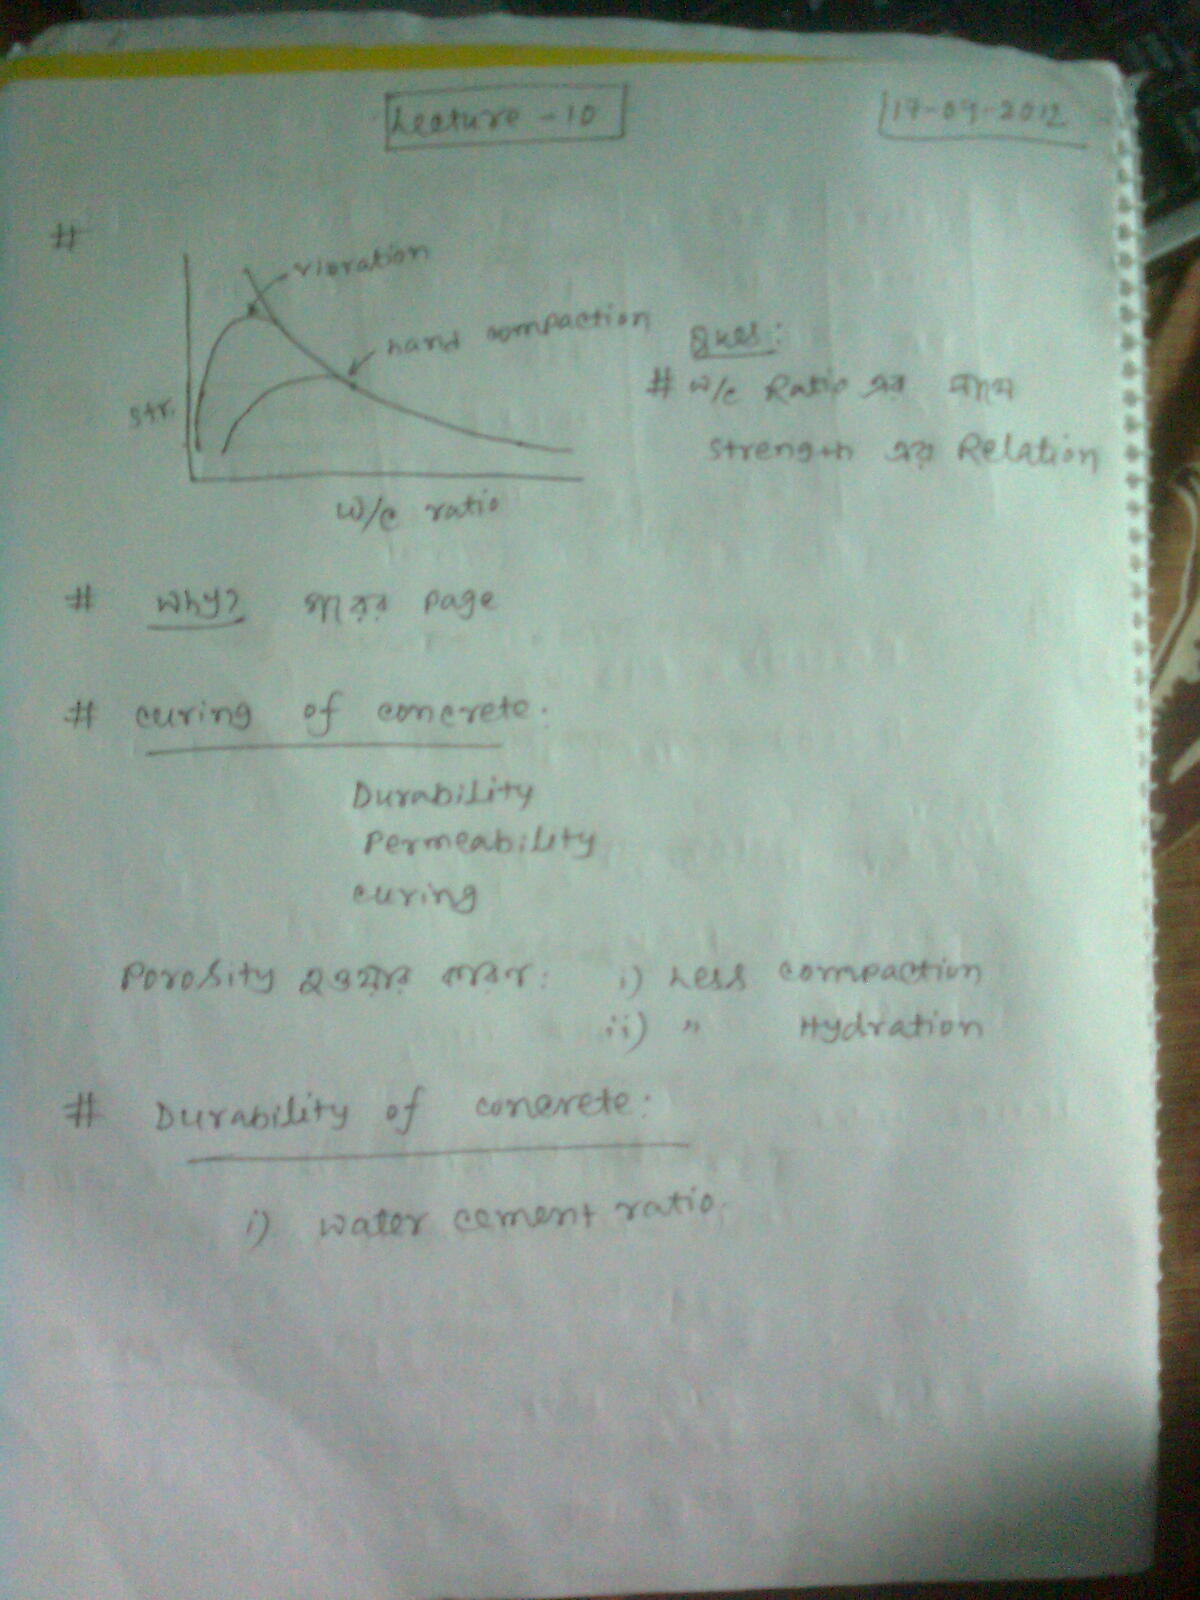 Lecture - 10
17-09-2012
#
vibration
hand compaction
str.
w/c ratio
Ques:
# w/c Ratio এর সাথে
strength এর Relation
# Why? পরের page
# curing of concrete:
Durability
Permeability
curing
Porosity হওয়ার কারন: i) Less compaction
ii) " Hydration
# Durability of concrete:
i) water cement ratio.